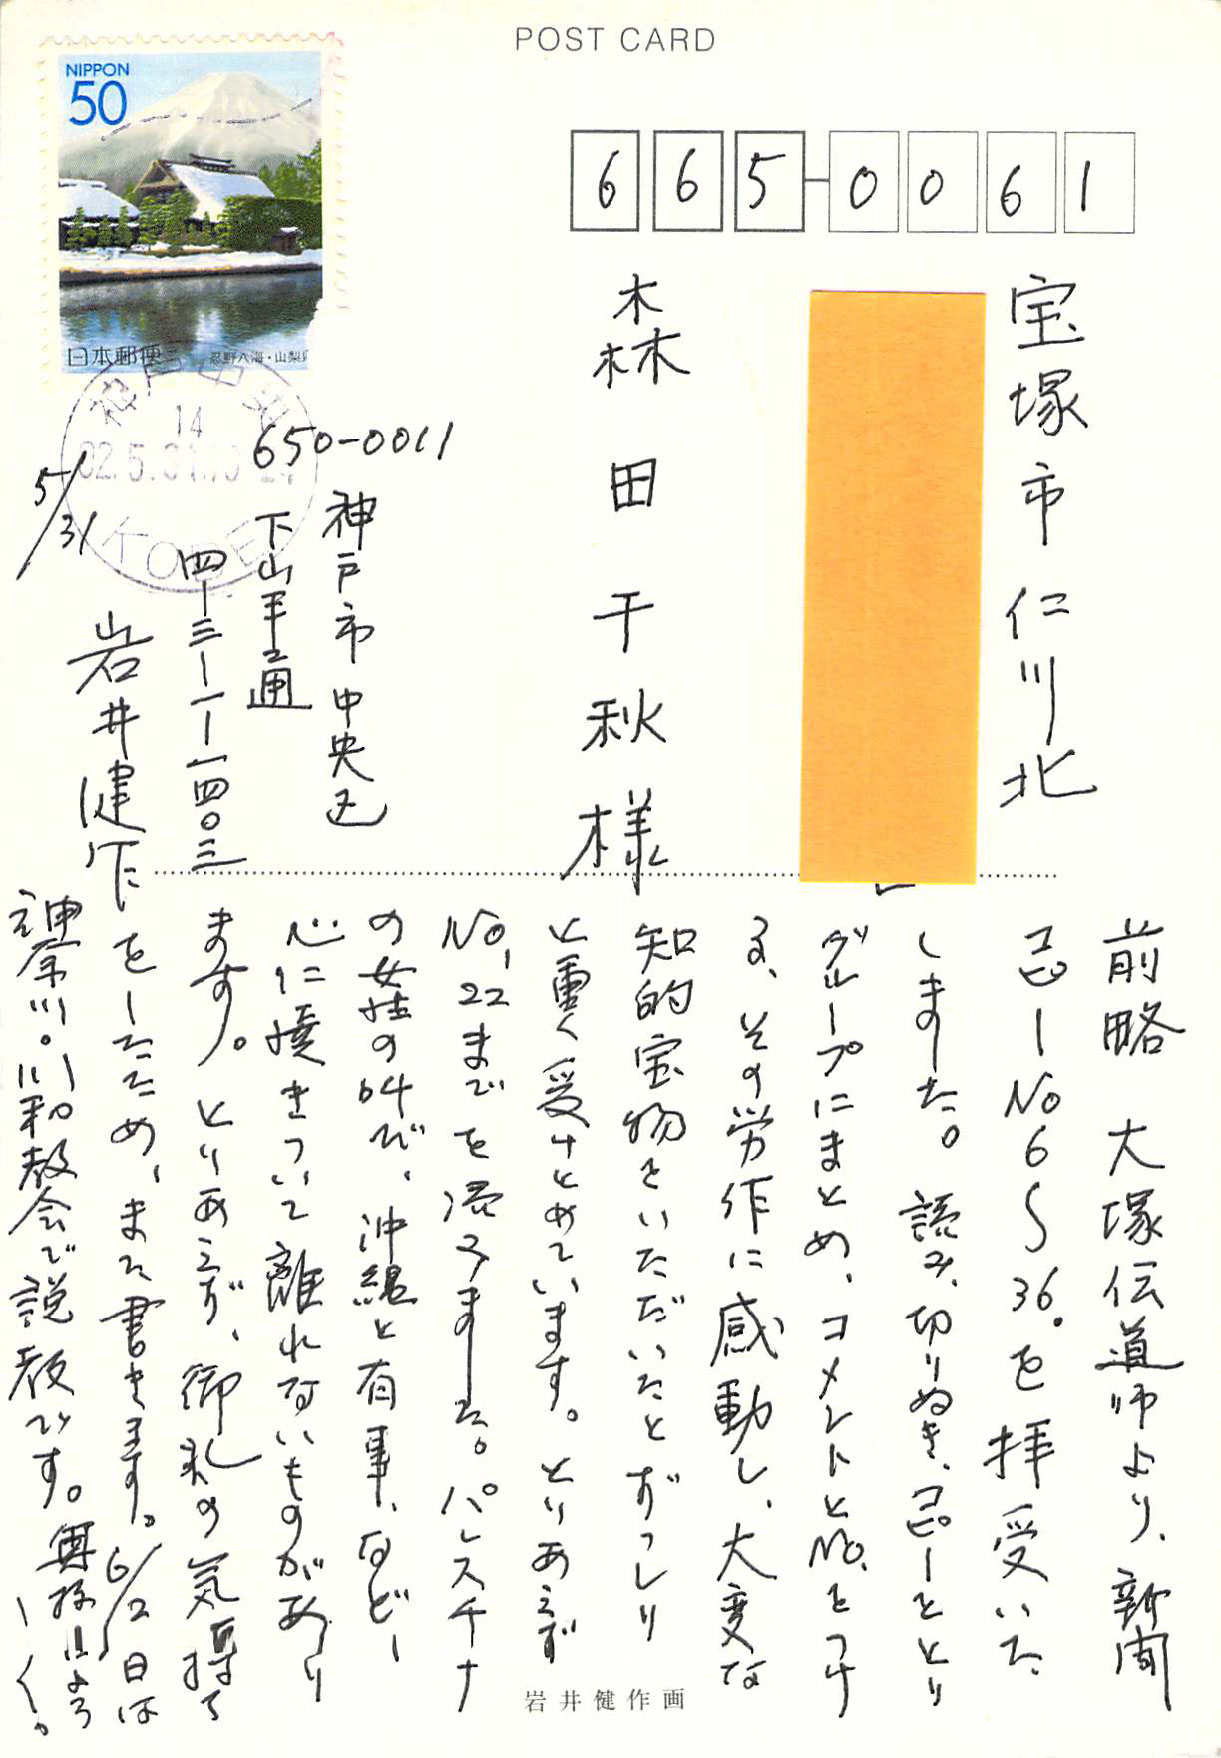 POST CARD
NIPPON
50
日本郵便
忍野八海・山梨県
665-0061
宝塚市仁川北
森田千秋様
14
02.5.31
KOBE
5/31
650-0011
神戸市中央区
下山手通
四-三-一-一四〇三
岩井健作
前略 大塚伝道師より、新聞
コピーNo6〜36.を拝受いた
しました。読み、切りぬき、コピーをとり
グループにまとめ、コメントとNo.をつけ
る、その労作に感動し、大変な
知的宝物をいただいたとずっしり
と重く受けとめています。とりあえず
No.22までを読みました。パレスチナ
の女性の叫び、沖縄と有事、など
心に焼きついて離れないものがあり
ます。とりあえず、御礼の気持
をしたため、また書きます。6/2日は
神奈川・川和教会で説教です。奥様によろ
しく。
岩井健作画